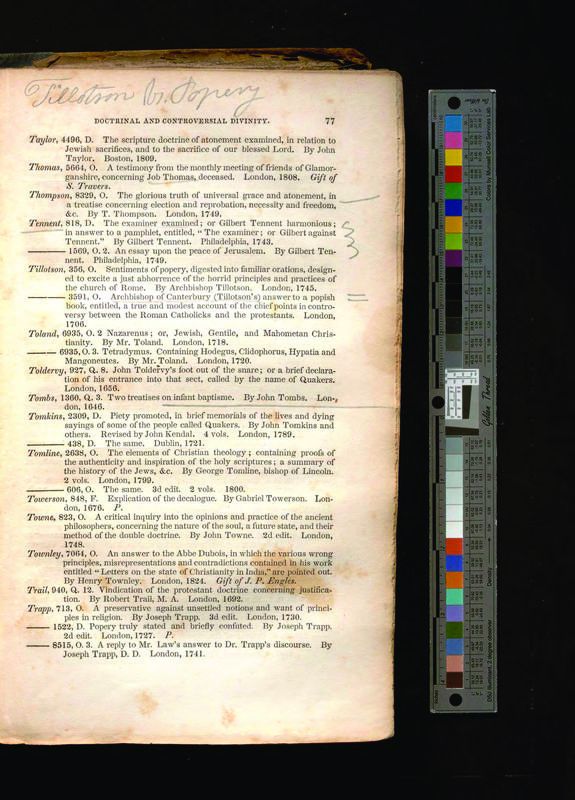 Tillotson Vs. Popery
DOCTRINAL AND CONTROVERSIAL DIVINITY. 77
Taylor, 4496, D. The scripture doctrine of atonement examined, in relation to
Jewish sacrifices, and to the sacrifice of our blessed Lord. By John
Taylor. Boston, 1809.
Thomas, 5664, O. A testimony from the monthly meeting of friends of Glamor-
ganshire, concerning Job Thomas, deceased. London, 1808. Gift of
S. Travers.
Thompson, 8329, O. The glorious truth of universal grace and atonement, in
a treatise concerning election and reprobation, necessity and freedom,
&c. By T. Thompson. London, 1749.
Tennent, 818, D. The examiner examined; or Gilbert Tennent harmonious;
in answer to a pamphlet, entitled, "The examiner; or Gilbert against
Tennent." By Gilbert Tennent. Philadelphia, 1743.
—— 1569, O. 2. An essay upon the peace of Jerusalem. By Gilbert Ten-
nent. Philadelphia, 1749.
Tillotson, 356, O. Sentiments of popery, digested into familiar orations, design-
ed to excite a just abhorrence of the horrid principles and practices of
the church of Rome. By Archbishop Tillotson. London, 1745.
—— 3591, O. Archbishop of Canterbury (Tillotson's) answer to a popish
book, entitled, a true and modest account of the chief points in contro-
versy between the Roman Catholicks and the protestants. London,
1706.
Toland, 6935, O. 2 Nazarenus; or, Jewish, Gentile, and Mahometan Chris-
tianity. By Mr. Toland. London, 1718.
—— 6935, O. 3. Tetradymus. Containing Hodegus, Clidophorus, Hypatia and
Mangoneutes. By Mr. Toland. London, 1720.
Toldervy, 927, Q. 8. John Toldervy's foot out of the snare; or a brief declara-
tion of his entrance into that sect, called by the name of Quakers.
London, 1656.
Tombs, 1360, Q. 3. Two treatises on infant baptisme. By John Tombs. Lon-
don, 1646.
Tomkins, 2309, D. Piety promoted, in brief memorials of the lives and dying
sayings of some of the people called Quakers. By John Tomkins and
others. Revised by John Kendal. 4 vols. London, 1789.
—— 438, D. The same. Dublin, 1721.
Tomline, 2638, O. The elements of Christian theology; containing proofs of
the authenticity and inspiration of the holy scriptures; a summary of
the history of the Jews, &c. By George Tomline, bishop of Lincoln.
2 vols. London, 1799.
—— 606, O. The same. 3d edit. 2 vols. 1800.
Towerson, 848, F. Explication of the decalogue. By Gabriel Towerson. Lon-
don, 1676. P.
Towne, 823, O. A critical inquiry into the opinions and practice of the ancient
philosophers, concerning the nature of the soul, a future state, and their
method of the double doctrine. By John Towne. 2d edit. London,
1748.
Townley, 7064, O. An answer to the Abbe Dubois, in which the various wrong
principles, misrepresentations and contradictions contained in his work
entitled "Letters on the state of Christianity in India," are pointed out.
By Henry Townley. London, 1824. Gift of J. P. Engles.
Trail, 940, Q. 12. Vindication of the protestant doctrine concerning justifica-
tion. By Robert Trail, M. A. London, 1692.
Trapp, 713, O. A preservative against unsettled notions and want of princi-
ples in religion. By Joseph Trapp. 3d edit. London, 1730.
—— 1522, D. Popery truly stated and briefly confuted. By Joseph Trapp.
2d edit. London, 1727. P.
—— 8515, O. 3. A reply to Mr. Law's answer to Dr. Trapp's discourse. By
Joseph Trapp, D. D. London, 1741.